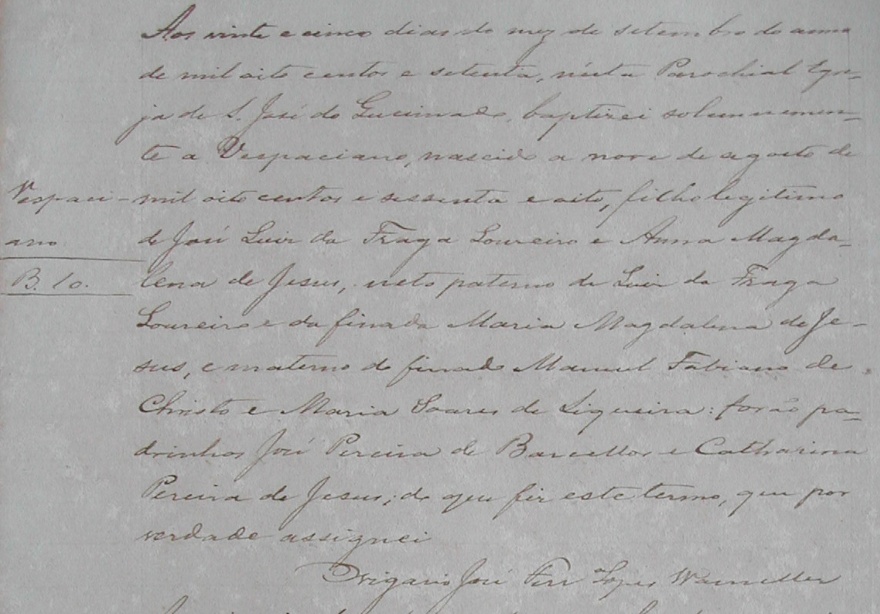 Aos vinte e cinco dias do mez de setembro do anno
de mil oito centos e setenta, n'esta Parochial Egre-
ja de S. José do baptizei solemnemen-
te a Vespaciano, nascido a nove de agosto de
Vespaci-
ano
B. 10.
mil oito centos e sessenta e oito, filho legitimo
de José Luiz da Fraga Loureiro e Anna Magda-
lena de Jesus, neto paterno de Luiz da Fraga
Loureiro e da finada Maria Magdalena de Je-
sus, e materno do finado Manuel Fabiano de
Christo e Maria Soares de Siqueira: forão pa-
drinhos José Pereira de Barcellos e Catharina
Pereira de Jesus; do que fiz este termo, que por
verdade assignei
O Vigario José Ferr Lopes